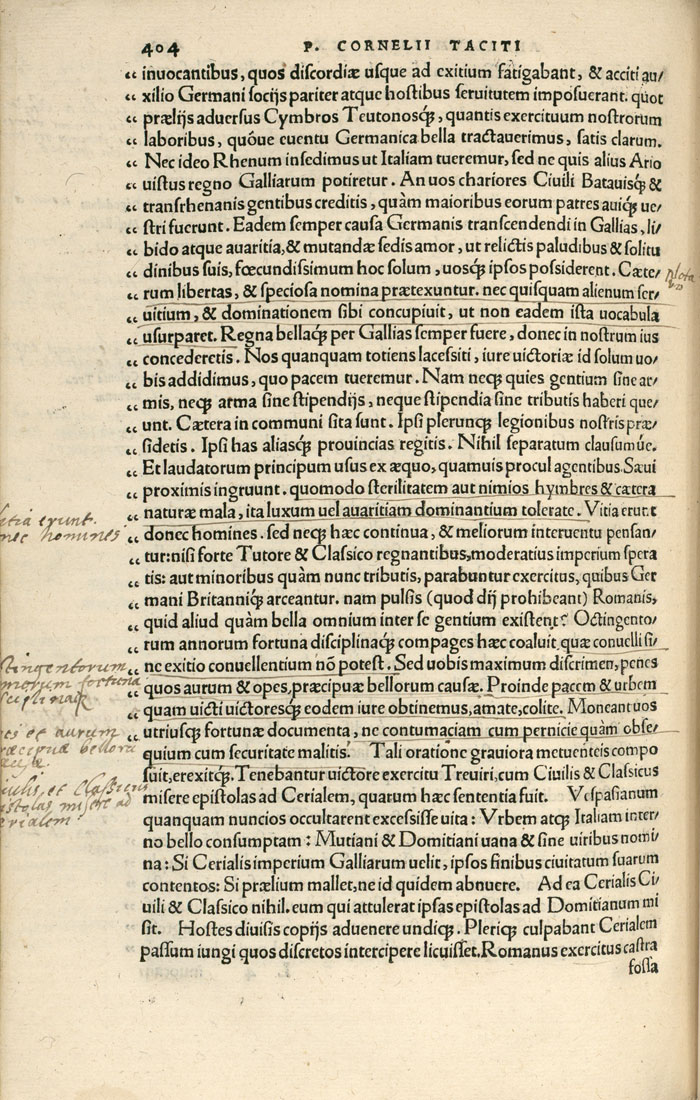 404 P. CORNELII TACITI
“ inuocantibus, quos discordiæ usque ad exitium fatigabant, & acciti au/
“ xilio Germani socijs pariter atque hostibus seruitutem imposuerant. quot
“ prælijs aduersus Cymbros Teutonosq́;, quantis exercituum nostrorum
“ laboribus, quóue euentu Germanica bella tractauerimus, satis clarum.
“ Nec ideo Rhenum insedimus ut Italiam tueremur, sed ne quis alius Ario
“ uistus regno Galliarum potiretur. An uos chariores Ciuili Batauisq́; &
“ transrhenanis gentibus creditis, quàm maioribus eorum patres auiq́; ue/
“ stri fuerunt. Eadem semper causa Germanis transcendendi in Gallias, li/
“ bido atque auaritia, & mutandæ sedis amor, ut relictis paludibus & solitu
“ dinibus suis, fœcundissimum hoc solum, uosq́; ipsos possiderent. Cæte/
“ rum libertas, & speciosa nomina prætexuntur. nec quisquam alienum ser/
“ uitium, & dominationem sibi concupiuit, ut non eadem ista uocabula
“ usurparet. Regna bellaq́; per Gallias semper fuere, donec in nostrum ius
“ concederetis. Nos quanquam totiens lacessiti, iure uictoriæ id solum uo/
“ bis addidimus, quo pacem tueremur. Nam neq; quies gentium sine ar/
“ mis, neq; arma sine stipendijs, neque stipendia sine tributis haberi que/
“ unt. Cætera in communi sita sunt. Ipsi plerunq; legionibus nostris præ/
“ sidetis. Ipsi has aliasq́; prouincias regitis. Nihil separatum clausumúe.
“ Et laudatorum principum usus ex æquo, quamuis procul agentibus. Sæui
“ proximis ingruunt. quomodo sterilitatem aut nimios hymbres & cætera
“ naturæ mala, ita luxum uel auaritiam dominantium tolerate. Vitia erunt
“ donec homines. sed neq; hæc continua, & meliorum interuentu pensan/
“ tur: nisi forte Tutore & Classico regnantibus, moderatius imperium spera
“ tis: aut minoribus quàm nunc tributis, parabuntur exercitus, quibus Ger
“ mani Britanniq́; arceantur. nam pulsis (quod dij prohibeant) Romanis,
“ quid aliud quàm bella omnium inter se gentium existent? Octingento/
“ rum annorum fortuna disciplinaq́; compages hæc coaluit, quæ conuelli si/
“ ne exitio conuellentium nō potest. Sed uobis maximum discrimen, penes
“ quos aurum & opes, præcipuæ bellorum causæ. Proinde pacem & urbem
“ quam uicti uictoresq́; eodem iure obtinemus, amate, colite. Moneant uos
“ utriusq; fortunæ documenta, ne contumaciam cum pernicie quàm obse/
“ quium cum securitate malitis. Tali oratione grauiora metuenteis compo
suit, erexitq́;. Tenebantur uictore exercitu Treuiri, cum Ciuilis & Classicus
misere epistolas ad Cerialem, quarum hæc sententia fuit. Vespasianum
quanquam nuncios occultarent excessisse uita: Vrbem atq; Italiam inter/
no bello consumptam: Mutiani & Domitiani uana & sine uiribus nomi/
na: Si Cerialis imperium Galliarum uelit, ipsos finibus ciuitatum suarum
contentos: Si prælium mallet, ne id quidem abnuere. Ad ea Cerialis Ci/
uili & Classico nihil. eum qui attulerat ipsas epistolas ad Domitianum mi
sit. Hostes diuisis copijs aduenere undiq;. Pleriq; culpabant Cerialem
passum iungi quos discretos intercipere licuisset. Romanus exercitus castra
fossa
nota
itia erunt.
nec homines
tingentorum
norum fortuna
sciplinaq;
es et aurum
ræcipuæ bellorū
ausæ.
iuilis, et Classicus
istolas misere ad
erialem